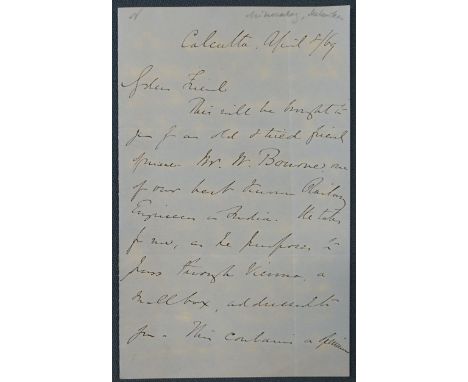 Calcutta, April 8/69
My dear Friend
This will be brought to
you by an old & tried friend
of mine Mr. W. Bourne, one
of our best known Railway
Engineers in India. He takes
for me, as he purposes to
pass through Vienna, a
small box, addressed to
you. This contains a specimen